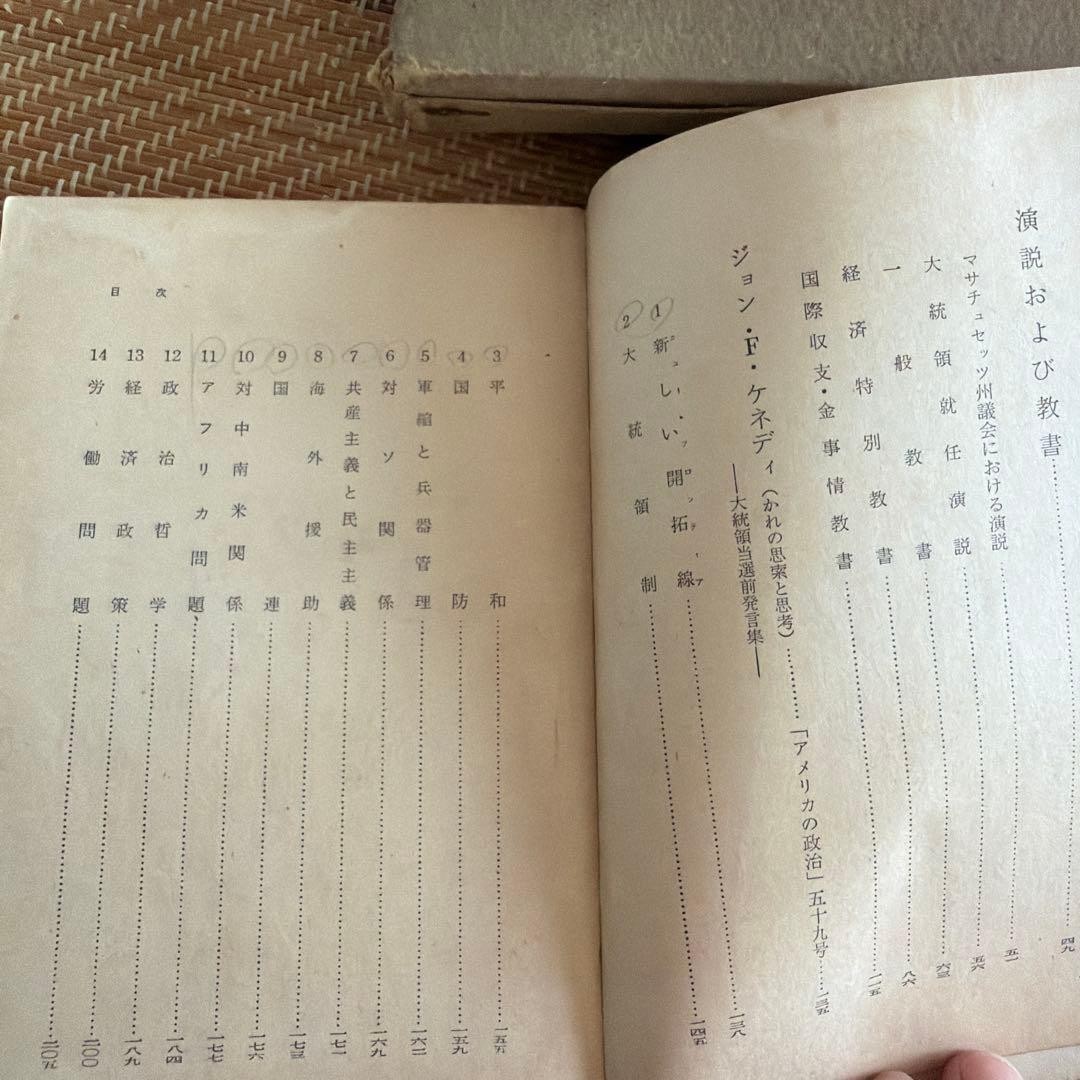 演説および教書……四九
マサチュセッツ州議会における演説……五一
大統領就任演説……五六
一般教書……六三
経済特別教書……八六
国際収支・金事情教書……一一五
ジョン・F・ケネディ(かれの思索と思考)……「アメリカの政治」五十九号…一三五
――大統領当選前発言集――
1 新しい開拓線……一三八
ニュー・フロンティア
2 大統領制……一四五
3 平和……一五五
4 国防……一五九
5 軍縮と兵器管理……一六二
6 対ソ関係……一六九
7 共産主義と民主主義……一七一
8 海外援助……一七三
9 国連……一七六
10 対中南米関係……一七六
11 アフリカ問題、……一七七
12 政治哲学……一八四
13 経済政策……一八九
14 労働問題……二〇〇
二〇五
目次